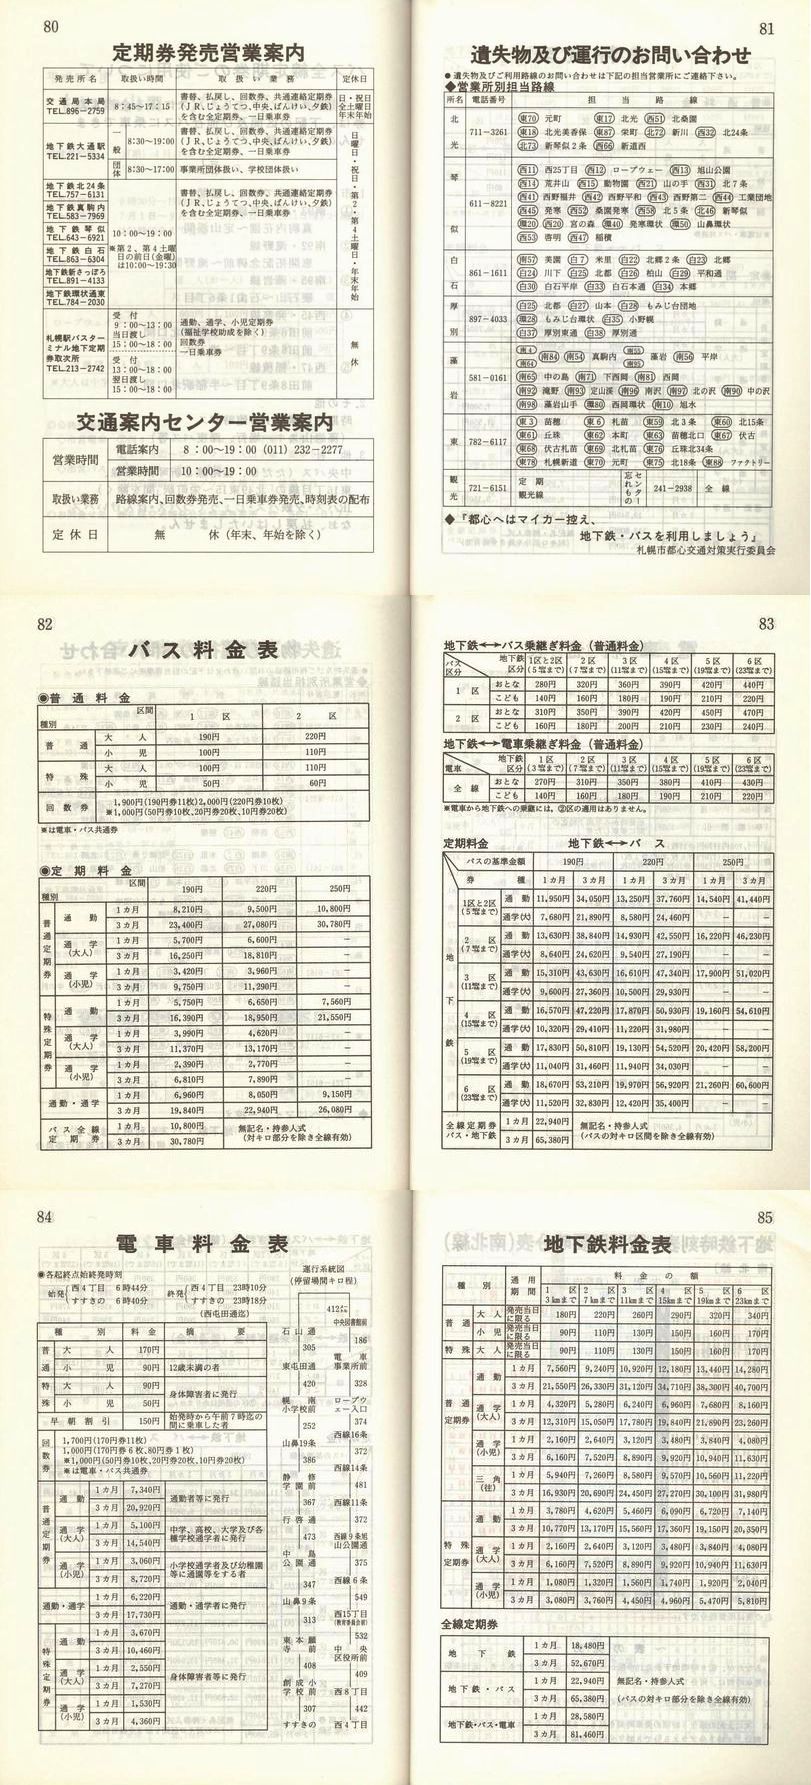 80
定期券発売営業案内
発売所名 取扱い時間 取扱い業務 定休日
交通局本局 TEL.896-2759 8:45~17:15 書替、払戻し、回数券、共通連絡定期券(JR、じょうてつ、中央、ばんけい、夕鉄)を含む全定期券、一日乗車券 日・祝日・全土曜日 年末年始
地下鉄大通駅 TEL.221-5334 一般 8:30~19:00 書替、払戻し、回数券、共通連絡定期券(JR、じょうてつ、中央、ばんけい、夕鉄)を含む全定期券、一日乗車券
団体 8:30~17:00 事業所団体扱い、学校団体扱い
日曜日・祝日・第2・第4土曜日・年末年始
地下鉄北24条 TEL.757-6131
地下鉄真駒内 TEL.583-7969
地下鉄琴似 TEL.643-6921
地下鉄白石 TEL.863-6304
地下鉄新さっぽろ TEL.891-4133
地下鉄環状通東 TEL.780-2030
10:00~19:00
※第2、第4土曜日の前日(金曜)は10:00~19:30
書替、払戻し、回数券、共通連絡定期券(JR、じょうてつ、中央、ばんけい、夕鉄)を含む全定期券、一日乗車券
札幌駅バスターミナル地下定期券取次所 TEL.213-2742
受付 9:00~13:00 当日渡し 15:00~18:00
受付 13:00~18:00 翌日渡し 15:00~18:00
通勤、通学、小児定期券(福祉学校助成を除く) 回数券 一日乗車券
無休
交通案内センター営業案内
営業時間 電話案内 8:00~19:00 (011) 232-2277
営業時間 10:00~19:00
取扱い業務 路線案内、回数券発売、一日乗車券発売、時刻表の配布
定休日 無休(年末、年始を除く)
81
遺失物及び運行のお問い合わせ
●遺失物及びご利用路線のお問い合わせは下記の担当営業所にご連絡下さい。
◆営業所別担当路線
所名 電話番号 担当路線
北光 711-3261
東70 元町 東17 北光 西51 北桑園
東18 北光美香保 東87 栄町 北72 新川 西32 北24条
北73 新琴似2条 西66 新道西
琴似 611-8221
西11 西25丁目 西12 ロープウェー 西13 旭山公園
西14 荒井山 西15 動物園 西21 山の手 西31 北7条
西41 西野福井 西42 西野平和 西43 西野第二 西44 工業団地
西45 発寒 西52 桑園発寒 西58 北5条 北46 新琴似
環20 西20 宮の森 環40 発寒環状 環50 山鼻環状
西53 啓明 西47 稲積
白石 861-1611
南57 美園 白7 米里 白22 北郷2条 白23 北郷
白24 川下 白25 北都 白26 柏山 白29 平和通
白30 白石平岸 白33 白石本通 白34 本郷
厚別 897-4033
白25 北都 白27 山本 白28 もみじ台団地
環28 もみじ台環状 白35 小野幌
白37 厚別東通 白38 厚別通
藻岩 581-0161
南4 南64 南84 南54 真駒内 南55 南95 藻岩 南56 平岸
南65 中の島 南71 下西岡 南81 西岡
南92 滝野 南93 定山渓 南96 南沢 南97 北の沢 南90 中の沢
南98 藻岩山手 環80 西岡環状 南10 旭水
東 782-6117
東3 苗穂 東6 札苗 東59 北3条 東60 北15条
東61 丘珠 東62 本町 東63 苗穂北口 東67 伏古
東68 伏古札苗 東69 北札苗 東76 丘珠北34条
東78 札幌新道 東70 元町 東75 北18条 東88 ファクトリー
観光 721-6151 定期観光線 忘れもの 241-2938 全線
◆『都心へはマイカー控え、
地下鉄・バスを利用しましょう』
札幌市都心交通対策実行委員会
82
バス料金表
◉普通料金
種別 区間 1区 2区
普通 大人 190円 220円
小児 100円 110円
特殊 大人 100円 110円
小児 50円 60円
回数券 1,900円(190円券11枚)2,000円(220円券10枚)
※1,000円(50円券10枚、20円券20枚、10円券20枚)
※は電車・バス共通券
◉定期料金
種別 区間 190円 220円 250円
普通定期券 通勤 1カ月 8,210円 9,500円 10,800円
3カ月 23,400円 27,080円 30,780円
通学(大人) 1カ月 5,700円 6,600円 -
3カ月 16,250円 18,810円 -
通学(小児) 1カ月 3,420円 3,960円 -
3カ月 9,750円 11,290円 -
特殊定期券 通勤 1カ月 5,750円 6,650円 7,560円
3カ月 16,390円 18,950円 21,550円
通学(大人) 1カ月 3,990円 4,620円 -
3カ月 11,370円 13,170円 -
通学(小児) 1カ月 2,390円 2,770円 -
3カ月 6,810円 7,890円 -
通勤・通学 1カ月 6,960円 8,050円 9,150円
3カ月 19,840円 22,940円 26,080円
バス全線定期券 1カ月 10,800円 無記名・持参人式
3カ月 30,780円 (対キロ部分を除き全線有効)
83
地下鉄⟷バス乗継ぎ料金(普通料金)
バス区分 地下鉄区分 1区と2区(5㌔まで) 2区(7㌔まで) 3区(11㌔まで) 4区(15㌔まで) 5区(19㌔まで) 6区(23㌔まで)
1区 おとな 280円 320円 360円 390円 420円 440円
こども 140円 160円 180円 190円 210円 220円
2区 おとな 310円 350円 390円 420円 450円 470円
こども 160円 180円 200円 210円 230円 240円
地下鉄⟷電車乗継ぎ料金(普通料金)
電車 地下鉄区分 1区(3㌔まで) 2区(7㌔まで) 3区(11㌔まで) 4区(15㌔まで) 5区(19㌔まで) 6区(23㌔まで)
全線 おとな 270円 310円 350円 380円 410円 430円
こども 140円 160円 180円 190円 210円 220円
※電車から地下鉄への乗継には、②区の適用はありません。
定期料金 地下鉄⟷バス
バスの基準金額 190円 220円 250円
券種 1カ月 3カ月 1カ月 3カ月 1カ月 3カ月
地下鉄
1区と2区(5㌔まで) 通勤 11,950円 34,050円 13,250円 37,760円 14,540円 41,440円
通学(大) 7,680円 21,890円 8,580円 24,460円 - -
2区(7㌔まで) 通勤 13,630円 38,840円 14,930円 42,550円 16,220円 46,230円
通学(大) 8,640円 24,620円 9,540円 27,190円 - -
3区(11㌔まで) 通勤 15,310円 43,630円 16,610円 47,340円 17,900円 51,020円
通学(大) 9,600円 27,360円 10,500円 29,930円 - -
4区(15㌔まで) 通勤 16,570円 47,220円 17,870円 50,930円 19,160円 54,610円
通学(大) 10,320円 29,410円 11,220円 31,980円 - -
5区(19㌔まで) 通勤 17,830円 50,810円 19,130円 54,520円 20,420円 58,200円
通学(大) 11,040円 31,460円 11,940円 34,030円 - -
6区(23㌔まで) 通勤 18,670円 53,210円 19,970円 56,920円 21,260円 60,600円
通学(大) 11,520円 32,830円 12,420円 35,400円 - -
全線定期券 バス・地下鉄 1カ月 22,940円 無記名・持参人式
3カ月 65,380円 (バスの対キロ区間を除き全線有効)
84
電車料金表
◉各起終点始終発時刻
始発 西4丁目 6時44分 すすきの 6時40分
終発 西4丁目 23時10分 すすきの 23時18分
(西屯田通迄)
種別 料金 摘要
普通 大人 170円
小児 90円 12歳未満の者
特殊 大人 90円 身体障害者に発行
小児 50円
早朝割引 150円 始発時から午前7時迄の間に乗車した者
回数券 1,700円(170円券11枚)
1,000円(170円券6枚、80円券1枚)
※1,000円(50円券10枚、20円券20枚、10円券20枚)
※は電車・バス共通券
普通定期券 通勤 1カ月 7,340円 通勤者等に発行
3カ月 20,920円
通学(大人) 1カ月 5,100円 中学、高校、大学及び各種学校通学者に発行
3カ月 14,540円
通学(小児) 1カ月 3,060円 小学校通学者及び幼稚園等に通園等をする者
3カ月 8,720円
通勤・通学 1カ月 6,220円 通勤・通学者に発行
3カ月 17,730円
特殊定期券 通勤 1カ月 3,670円 身体障害者等に発行
3カ月 10,460円
通学(大人) 1カ月 2,550円
3カ月 7,270円
通学(小児) 1カ月 1,530円
3カ月 4,360円
運行系統図
(停留場間キロ程)
412㍍
中央図書館前
186
電車事業所前
328
ロープウェー入口
374
西線16条
372
西線14条
481
西線11条
372
西線9条旭山公園通
375
西線6条
549
西15丁目
(教育委員会前)
532
中央区役所前
409
西8丁目
442
西4丁目
石山通
305
東屯田通
420
幌南小学校前
252
山鼻19条
386
静修学園前
367
行啓通
473
中島公園通
347
山鼻9条
313
東本願寺前
408
創成小学校前
307
すすきの
85
地下鉄料金表
種別 通用期間 料金の額
1区 3kmまで 2区 7kmまで 3区 11kmまで 4区 15kmまで 5区 19kmまで 6区 23kmまで
普通 大人 発売当日に限る 180円 220円 260円 290円 320円 340円
小児 発売当日に限る 90円 110円 130円 150円 160円 170円
特殊 大人 発売当日に限る 90円 110円 130円 150円 160円 170円
普通定期券 通勤 1カ月 7,560円 9,240円 10,920円 12,180円 13,440円 14,280円
3カ月 21,550円 26,330円 31,120円 34,710円 38,300円 40,700円
通学(大人) 1カ月 4,320円 5,280円 6,240円 6,960円 7,680円 8,160円
3カ月 12,310円 15,050円 17,780円 19,840円 21,890円 23,260円
通学(小児) 1カ月 2,160円 2,640円 3,120円 3,480円 3,840円 4,080円
3カ月 6,160円 7,520円 8,890円 9,920円 10,940円 11,630円
三角(往) 1カ月 5,940円 7,260円 8,580円 9,570円 10,560円 11,220円
3カ月 16,930円 20,690円 24,450円 27,270円 30,100円 31,980円
特殊定期券 通勤 1カ月 3,780円 4,620円 5,460円 6,090円 6,720円 7,140円
3カ月 10,770円 13,170円 15,560円 17,360円 19,150円 20,350円
通学(大人) 1カ月 2,160円 2,640円 3,120円 3,480円 3,840円 4,080円
3カ月 6,160円 7,520円 8,890円 9,920円 10,940円 11,630円
通学(小児) 1カ月 1,080円 1,320円 1,560円 1,740円 1,920円 2,040円
3カ月 3,080円 3,760円 4,450円 4,960円 5,470円 5,810円
全線定期券
地下鉄 1カ月 18,480円
3カ月 52,670円
地下鉄・バス 1カ月 22,940円 無記名・持参人式
3カ月 65,380円 (バスの対キロ部分を除き全線有効)
地下鉄・バス・電車 1カ月 28,580円
3カ月 81,460円